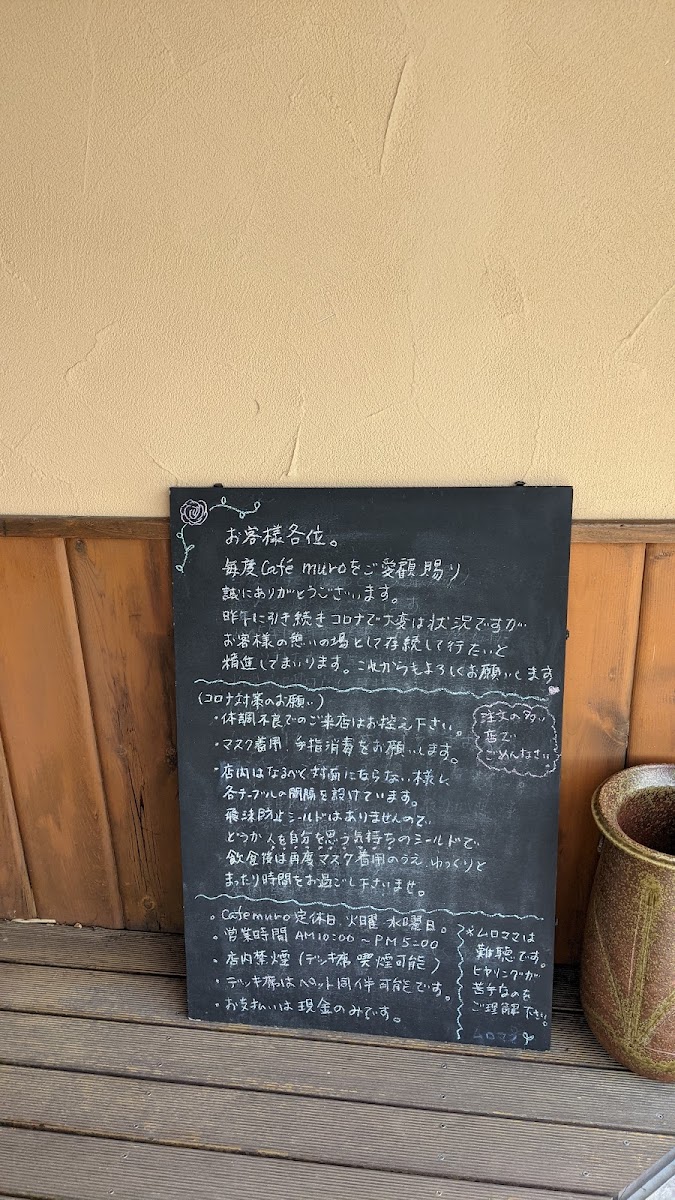 お客様各位。
毎度Café muroをご愛顧賜り
誠にありがとうございます。
昨年に引き続きコロナで大変な状況ですが
お客様の憩いの場として存続して行たいと
精進してまいります。これからもよろしくお願いします
(コロナ対策のお願い)
・体調不良でのご来店はお控え下さい。
・マスク着用、手指消毒をお願いします。
注文の多い
店で
ごめんなさい。
・店内はなるべく対面にならない様に
各テーブルの間隔を設けています。
飛沫防止シールドはありませんので、
どうか人を自分を思う気持ちのシールドで、
飲食後は再度マスク着用のうえ、ゆっくりと
まったり時間をお過ごし下さいませ。
・Cafemuro定休日、火曜 水曜日。
・営業時間 AM10:00〜PM5:00
・店内禁煙(デッキ席 喫煙可能)
・デッキ席はペット同伴可能です。
・お支払いは現金のみです。
*ムロママは
難聴です。
ヒヤリングが
苦手なのを
ご理解下さい。
ムロママ